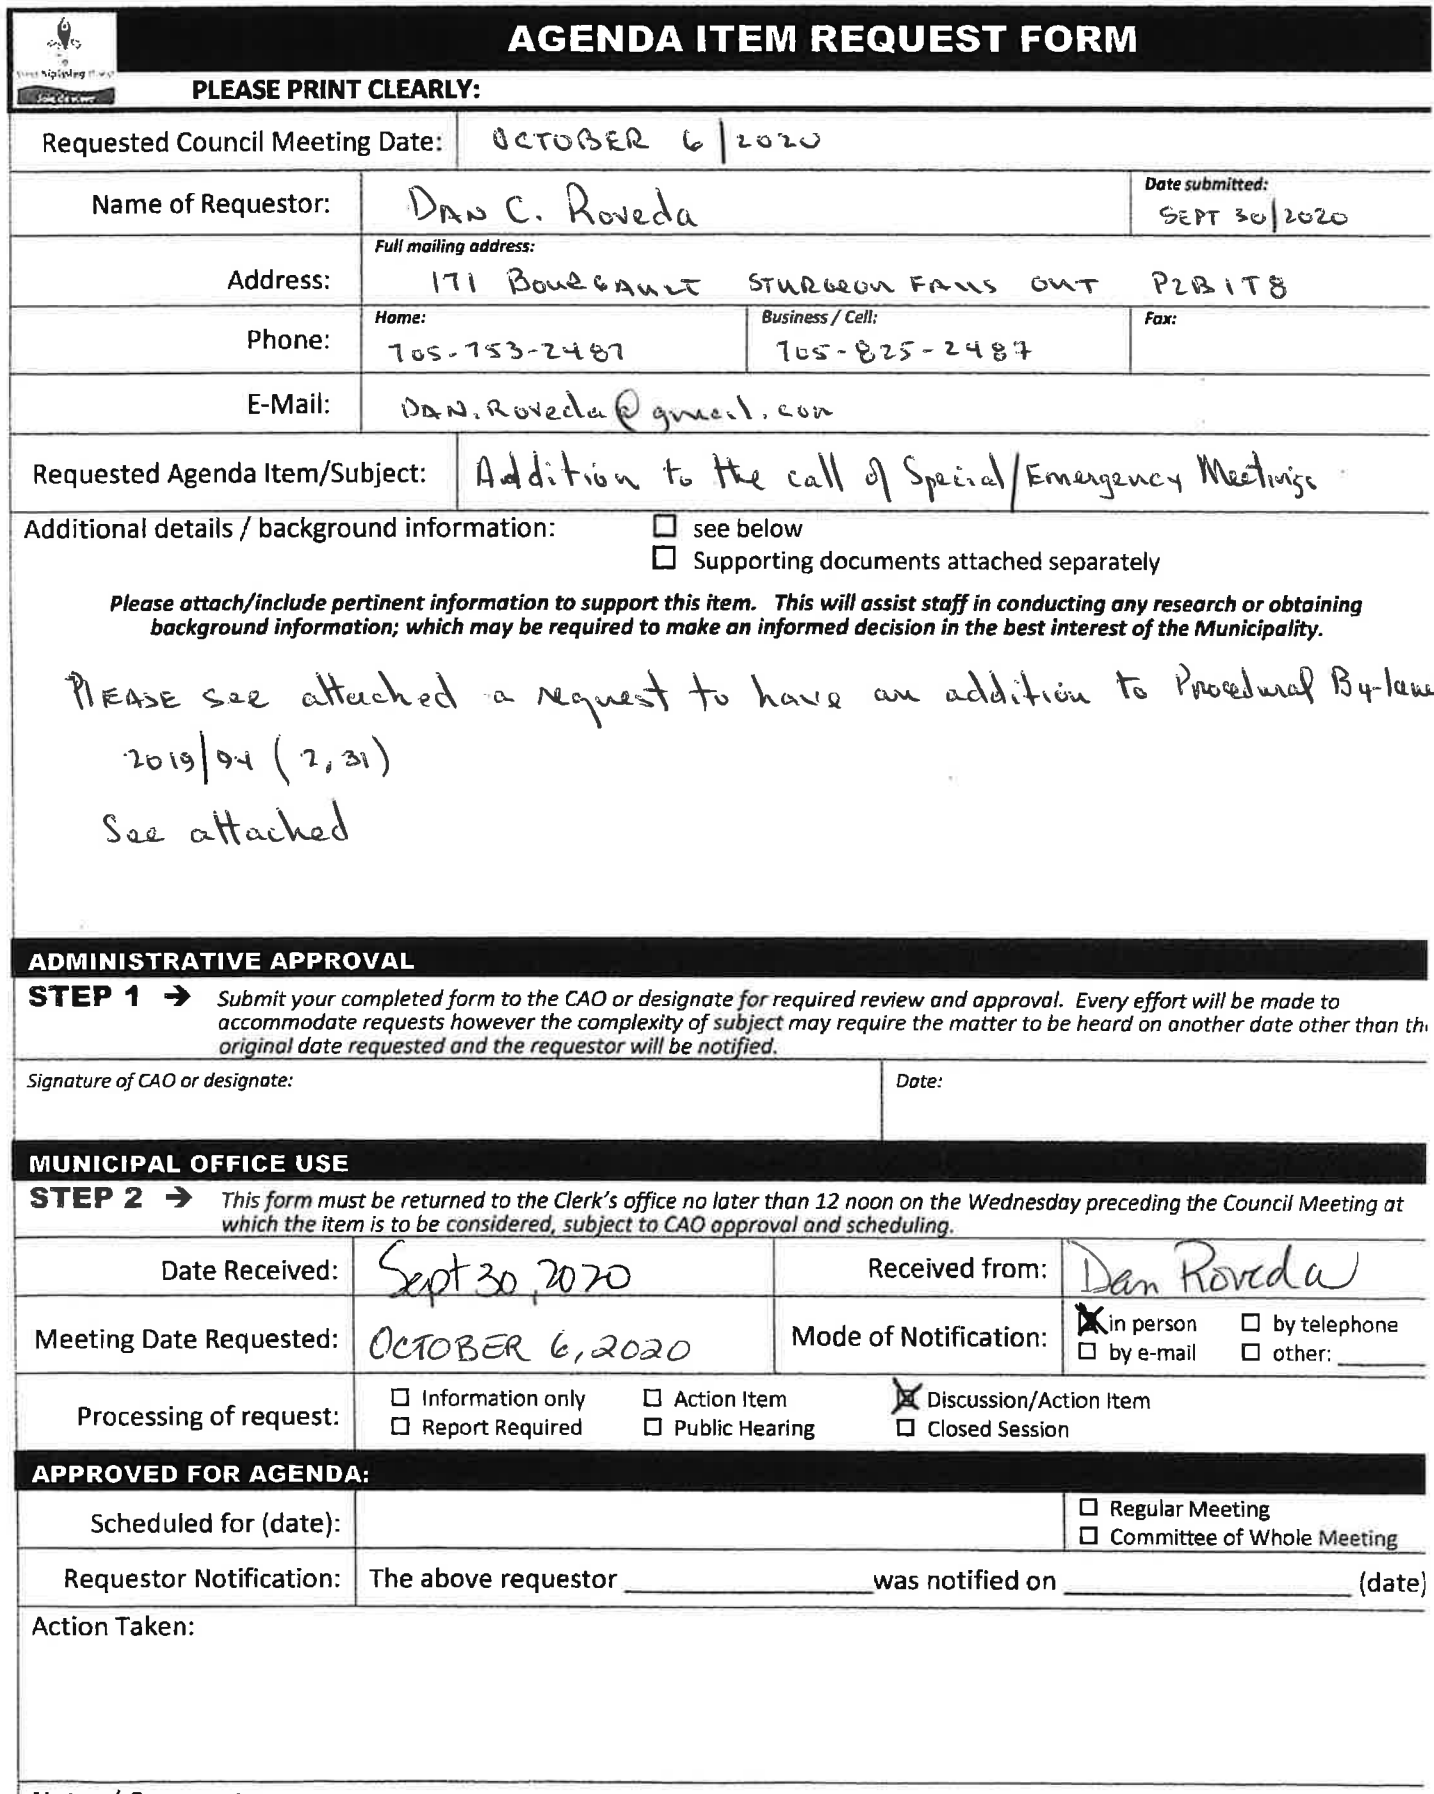 AGENDA ITEM REQUEST FORM
PLEASE PRINT CLEARLY:
Requested Council Meeting Date: OCTOBER 6/2020
Name of Requestor: DAN C. Roveda Date submitted: SEPT 30/2020
Address: Full mailing address: 171 BOURGAULT STURGEON FALLS ONT P2B1T8
Phone: Home: 705-753-2487 Business / Cell: 705-825-2487 Fax:
E-Mail: DAN.Roveda@gmail.com
Requested Agenda Item/Subject: Addition to the call of Special/Emergency Meetings
Additional details / background information: ☐ see below
☐ Supporting documents attached separately
Please attach/include pertinent information to support this item. This will assist staff in conducting any research or obtaining
background information; which may be required to make an informed decision in the best interest of the Municipality.
PlEASE see attached a request to have an addition to Procedural By-law
2019/94 (2,31)
See attached
ADMINISTRATIVE APPROVAL
STEP 1 → Submit your completed form to the CAO or designate for required review and approval. Every effort will be made to
accommodate requests however the complexity of subject may require the matter to be heard on another date other than th
original date requested and the requestor will be notified.
Signature of CAO or designate: Date:
MUNICIPAL OFFICE USE
STEP 2 → This form must be returned to the Clerk's office no later than 12 noon on the Wednesday preceding the Council Meeting at
which the item is to be considered, subject to CAO approval and scheduling.
Date Received: Sept 30, 2020 Received from: Dan Roveda
Meeting Date Requested: OCTOBER 6, 2020 Mode of Notification: ☒ in person ☐ by telephone
☐ by e-mail ☐ other: ______
Processing of request: ☐ Information only ☐ Action Item ☒ Discussion/Action Item
☐ Report Required ☐ Public Hearing ☐ Closed Session
APPROVED FOR AGENDA:
Scheduled for (date): ☐ Regular Meeting
☐ Committee of Whole Meeting
Requestor Notification: The above requestor ______ was notified on ______ (date)
Action Taken: